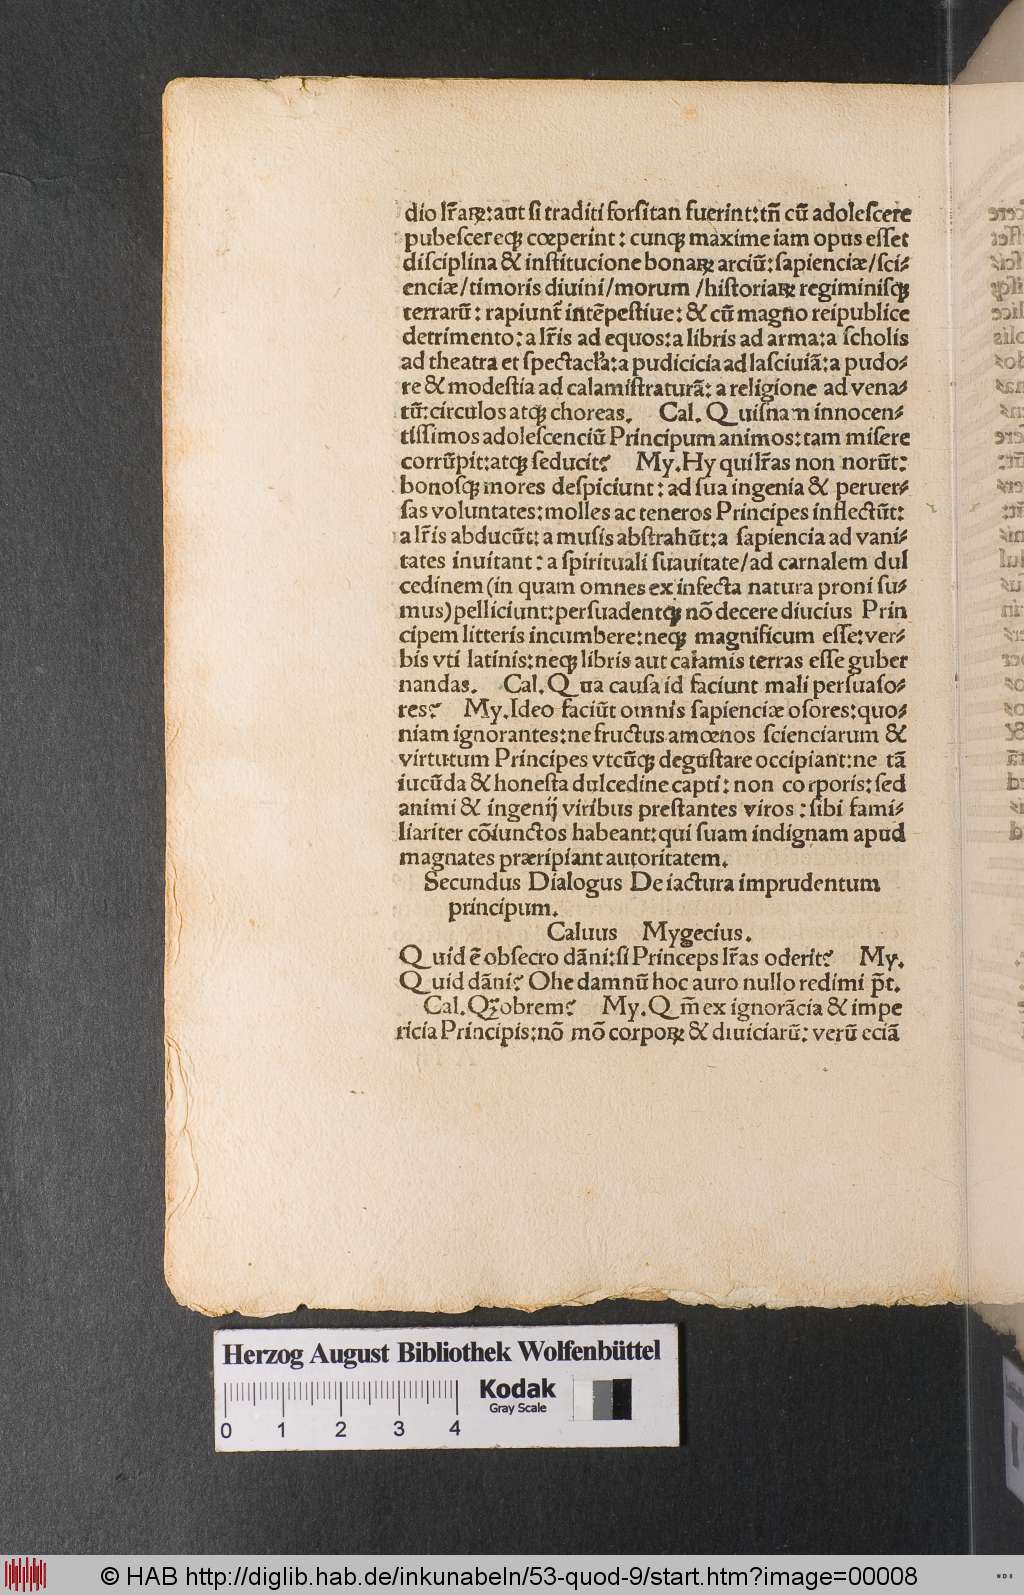 dio lr̃aꝝ: aut si traditi forsitan fuerint: tñ cũ adolescere
pubescereqꝫ cœperint: cunqꝫ maxime iam opus esset
disciplina & institucione bonaꝝ arciũ: sapienciæ/sci⸗
enciæ/timoris diuini/morum /historiaꝝ regiminisqꝫ
terrarũ: rapiunt̃ intẽpestiue: & cũ magno reipublice
detrimento: a lr̃is ad equos: a libris ad arma: a scholis
ad theatra et spectacła: a pudicicia ad lasciuiã: a pudo⸗
re & modestia ad calamistraturã: a religione ad vena⸗
tũ: circulos atqꝫ choreas. Cal. Quisnam innocen⸗
tissimos adolescenciũ Principum animos: tam misere
corrũpit: atqꝫ seducit? My. Hy qui lr̃as non norũt:
bonosqꝫ mores despiciunt: ad sua ingenia & peruer⸗
sas voluntates: molles ac teneros Principes inflectũt:
a lr̃is abducũt: a musis abstrahũt: a sapiencia ad vani⸗
tates inuitant: a spirituali suauitate/ad carnalem dul
cedinem (in quam omnes ex infecta natura proni su⸗
mus) pelliciunt: persuadentqꝫ nõ decere diucius Prin
cipem litteris incumbere: neqꝫ magnificum esse: ver⸗
bis vti latinis: neqꝫ libris aut całamis terras esse guber
nandas. Cal. Qua causa id faciunt mali persuaso⸗
res? My. Ideo faciũt omnis sapienciæ osores: quo⸗
niam ignorantes: ne fructus amœnos scienciarum &
virtutum Principes vtcũqꝫ degustare occipiant: ne tã
iucũda & honesta dulcedine capti: non corporis: sed
animi & ingenij viribus prestantes viros: sibi fami⸗
liariter cõiunctos habeant: qui suam indignam apud
magnates præripiant autoritatem.
Secundus Dialogus De iactura imprudentum
principum.
Caluus Mygecius.
Quid ẽ obsecro dãni: si Princeps lr̃as oderit? My.
Quid dãni? Ohe damnũ hoc auro nullo redimi p̃t.
Cal. Qꝫobrem? My. Qm̃ ex ignorãcia & impe
ricia Principis: nõ mõ corpoꝝ & diuiciarũ: verũ eciã
Herzog August Bibliothek Wolfenbüttel
Kodak
Gray Scale
0 1 2 3 4
© HAB http://diglib.hab.de/inkunabeln/53-quod-9/start.htm?image=00008